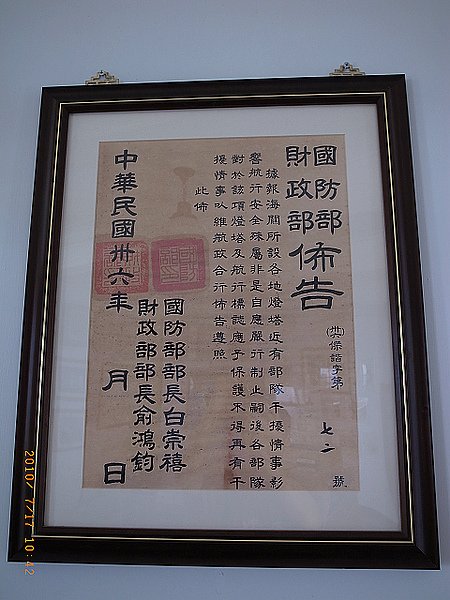 國防部
財政部
佈告
(卅)保諧字第 七二 號
據報海關所設各地燈塔近有部隊干擾情事影
響航行安全殊屬非是自應嚴行制止嗣後各部隊
對於該項燈塔及航行標誌應予保護不得再有干
擾情事以維航政合行佈告遵照
此佈
國防部部長白崇禧
財政部部長俞鴻鈞
中華民國卅六年 月 日
2010/7/17 10:42